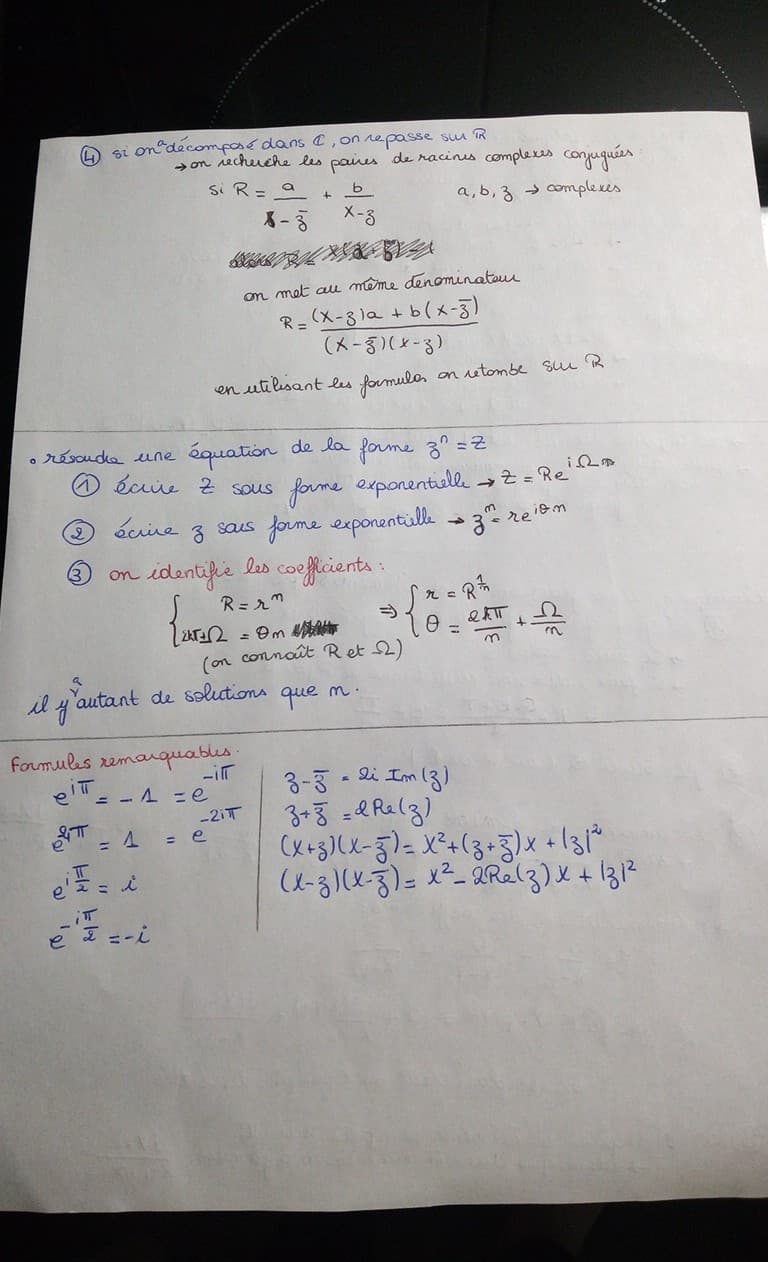 ④ si on a décomposé dans ℂ, on repasse sur ℝ
→ on recherche les paires de racines complexes conjuguées.
si R = a/(X - z̄) + b/(X - z)    a, b, z → complexes
on met au même dénominateur
R = ((X - z)a + b(X - z̄))/((X - z̄)(X - z))
en utilisant les formules on retombe sur ℝ
• résoudre une équation de la forme zⁿ = Z
① écrire Z sous forme exponentielle → Z = Re^(iΩ)
② écrire z sous forme exponentielle → zⁿ = re^(iθn)
③ on identifie les coefficients :
{ R = rⁿ    ⇒ { r = R^(1/n)
2kπ+Ω = θn    θ = 2kπ/n + Ω/n
(on connaît R et Ω)
il y a autant de solutions que n.
Formules remarquables.
e^(iπ) = -1 = e^(-iπ)
e^(2iπ) = 1 = e^(-2iπ)
e^(iπ/2) = i
e^(-iπ/2) = -i
z - z̄ = 2i Im(z)
z + z̄ = 2Re(z)
(X+z)(X-z̄) = X² + (z+z̄)X + |z|²
(X-z)(X-z̄) = X² - 2Re(z)X + |z|²